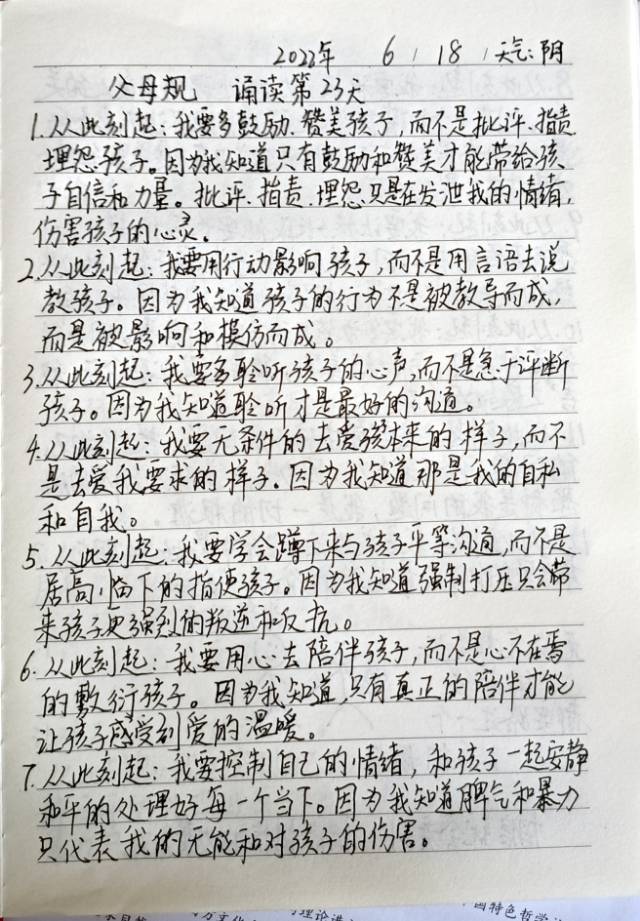 2022年 6 18 天气:阴
父母规 诵读第23天
1.从此刻起:我要多鼓励、赞美孩子,而不是批评、指责
埋怨孩子。因为我知道只有鼓励和赞美才能带给孩
子自信和力量。批评、指责、埋怨只是在发泄我的情绪,
伤害孩子的心灵。
2.从此刻起:我要用行动影响孩子,而不是用言语去说
教孩子。因为我知道孩子的行为不是被教导而成,
而是被影响和模仿而成。
3.从此刻起:我要多聆听孩子的心声,而不是急于评断
孩子。因为我知道聆听才是最好的沟通。
4.从此刻起:我要无条件的去爱孩本来的样子,而不
是去爱我要求的样子。因为我知道那是我的自私
和自我。
5.从此刻起:我要学会蹲下来与孩子平等沟通,而不是
居高临下的指使孩子。因为我知道强制打压只会带
来孩子更强烈的叛逆和反抗。
6.从此刻起:我要用心去陪伴孩子,而不是心不在焉
的敷衍孩子。因为我知道,只有真正的陪伴才能
让孩子感受到爱的温暖。
7.从此刻起:我要控制自己的情绪,和孩子一起安静
和平的处理好每一个当下。因为我知道脾气和暴力
只代表我的无能和对孩子的伤害。